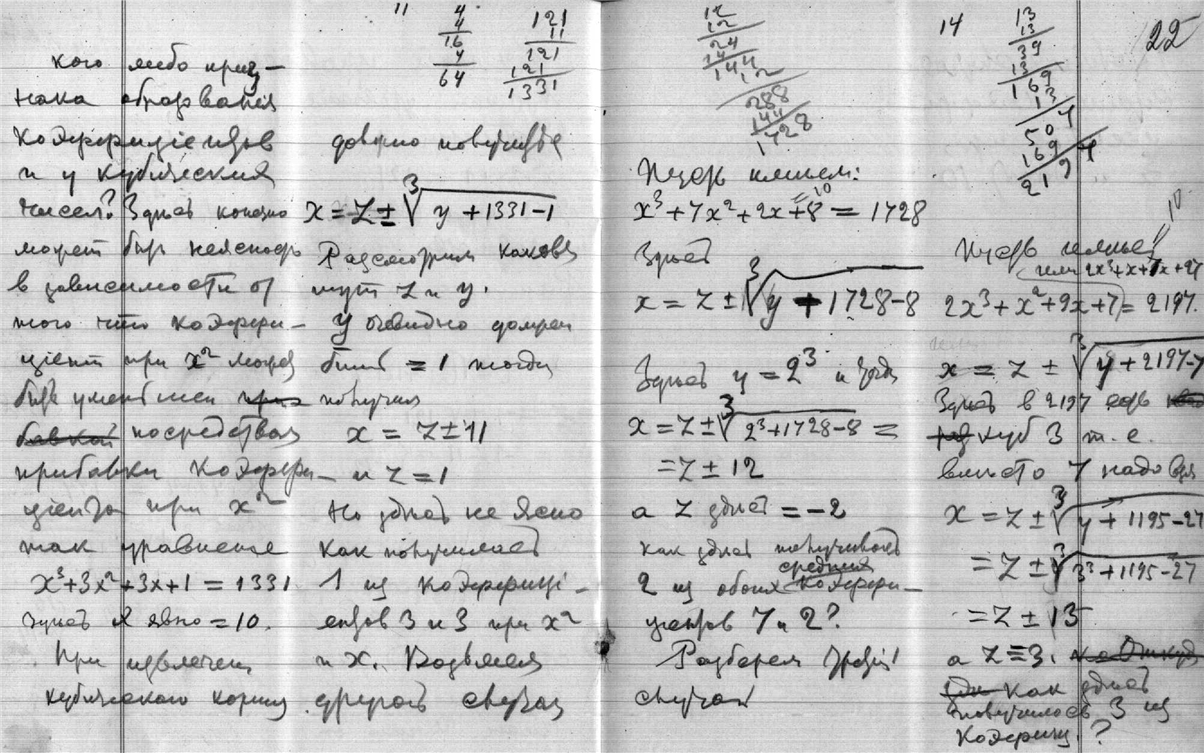 11
4
4
16
4
64
121
11
121
121
1331
кого либо приз-
нака образования
коэффицiентов
и у кубическия
чисел? Здесь конечно
может быть неясность
в зависимости от
того что коэффи-
цiент при x² может
быть уменьшен
посредством
прибавки коэффи-
цiента при x²
так уравненiе
x³+3x²+3x+1 = 1331
здесь x явно = 10.
При извлеченiи
кубическаго корня
должно получиться
x = Z ± ³√ y + 1331 - 1
Разсмотрим каковы
тут Z и y.
y очевидно должен
быть = 1 тогда
получим
x = Z ± 11
и Z = 1
Но здесь не ясно
как получилась
1 из коэффицi-
ентов 3 и 3 при x²
и x. Возьмем
другой случай
12
12
24
144
12
288
144
1728
Пусть имеем:
= 10
x³+7x²+2x+8 = 1728
Здесь
x = Z ± ³√ y + 1728-8
Здесь y = 2³ и тогда
x = Z ± ³√ 2³+1728-8 =
= Z ± 12
а Z здесь = -2
как здесь получилось
средния
2 из обоих коэффи-
цiентов 7 и 2?
Разберем третiй
случай
14
22
13
13
39
13
169
13
50
169
219
10
Пусть имеем
или 2x³+x+7x+27
2x³+x²+9x+7 = 2197.
x = Z ± ³√ y + 2197-7
Здесь в 2197 есть
куб 3 т. е.
вместо 7 надо взять
x = Z ± ³√ y + 1195-27
= Z ± ³√ 3³+1195-27
= Z ± 13
а Z = 3.
как здесь
получилось 3 из
коэффиц. ?